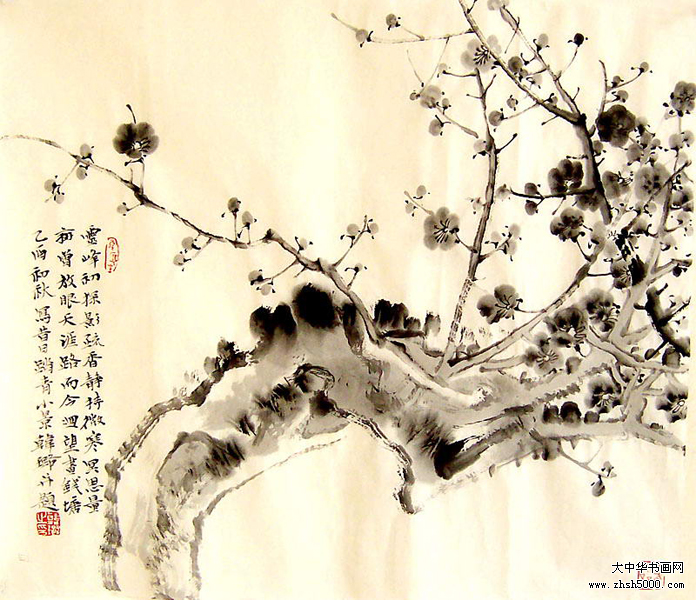 灵峰初探影疏香静猗微寒冥思量
初曾放眼天涯路而今迴望書錢塘
乙酉初秋寫昔日踏青小景韓歸并題
大中华书画网
www.zhsh5000.com